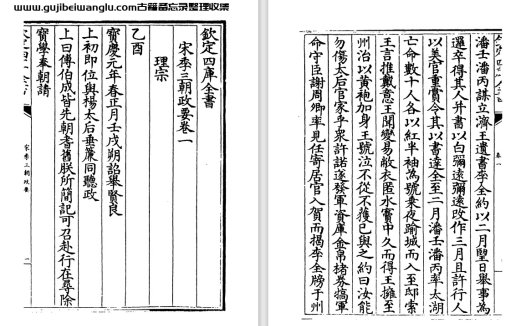 www.gujibeiwanglu.com古籍备忘录整理收集
欽定四庫全書
宋季三朝政要卷一
理宗
乙酉
寶慶元年春正月壬戌朔詔舉賢良
上初即位與楊太后垂簾同聽政
上曰傅伯成皆先朝耆舊朕所簡記可召赴行在尋除
寶學奉朝請
宋季三朝政要
潘壬潘丙謀立濟王遺書李全約以二月望日舉事為
邏卒得其人并書以白彌遠彌遠改作三月且許行人
以美官重賞令其以書達全至二月潘壬潘丙率太湖
亡命數十人各以紅半袖為號乘夜踰城而入至邸索
王言推戴意王聞變易敝衣匿水竇中久而得王擁至
州治以黃袍加身王號泣不從不獲已與之約曰汝能
勿傷太后官家乎衆許諾遂發軍資庫金帛楮券犒軍
命守臣謝周卿率見任寄居官入賀而揭李全牓于州